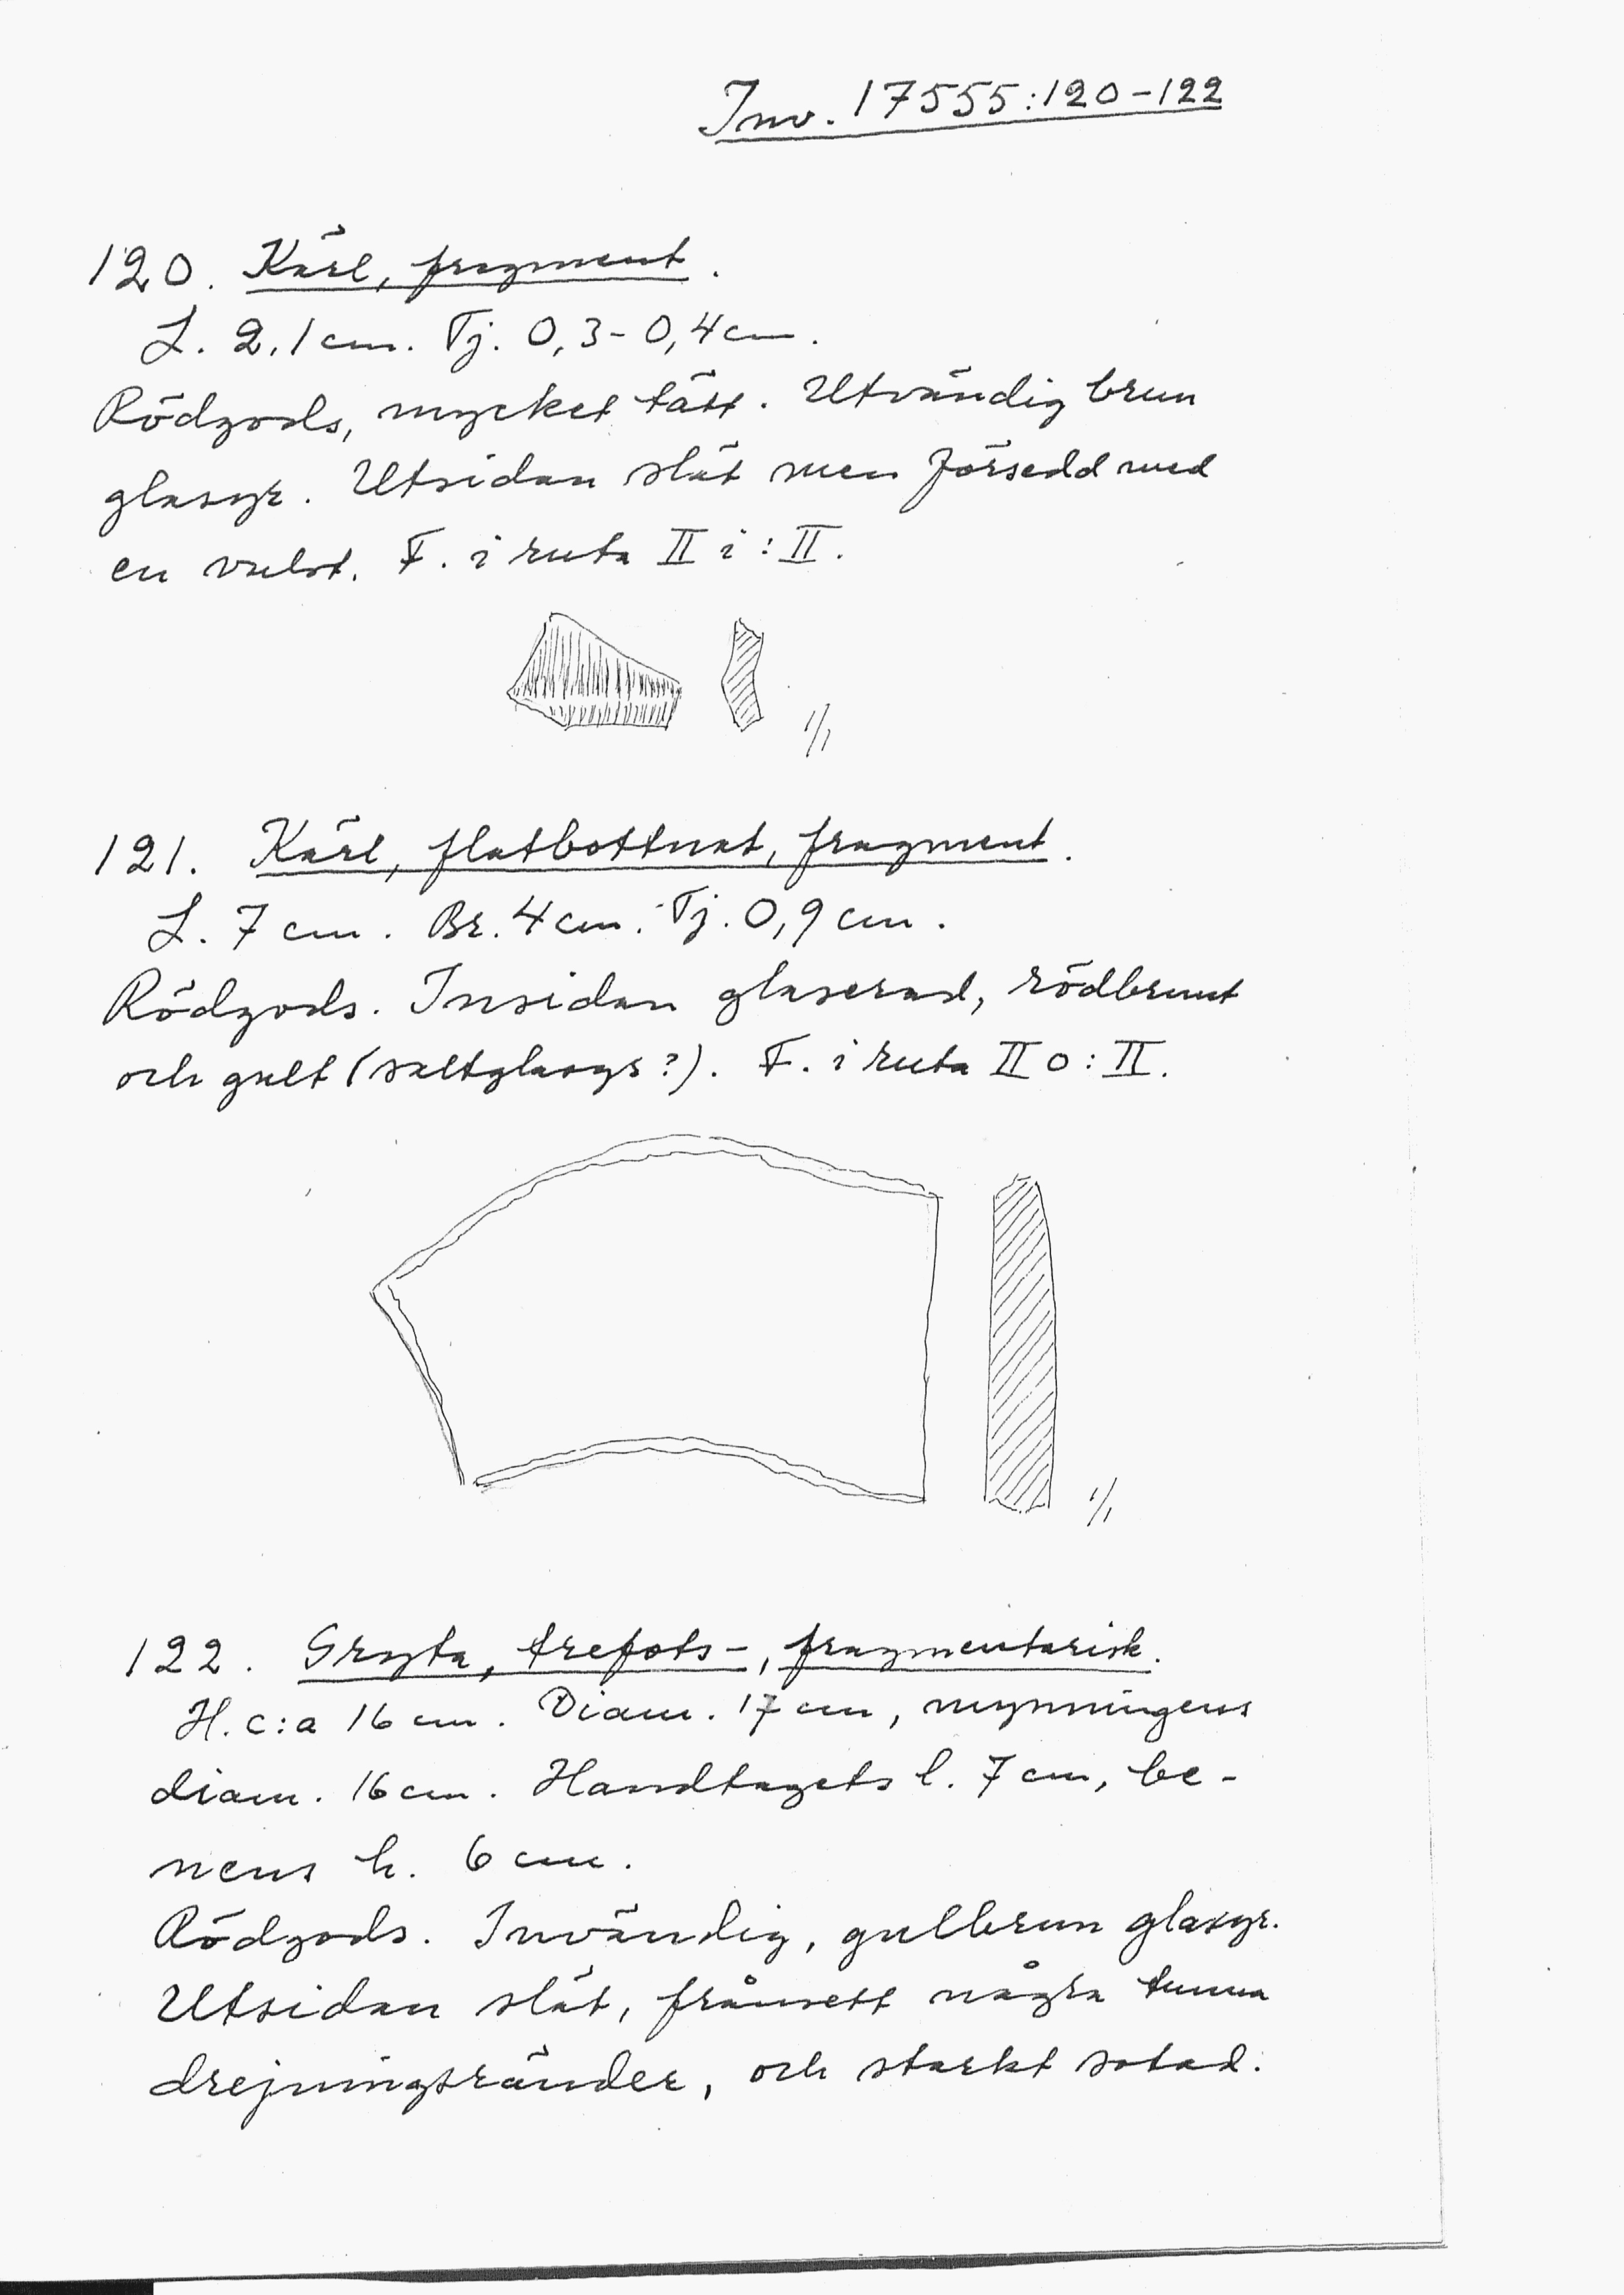 Inv. 17555:120-122
120. Kärl, fragment.
L. 2,1 cm. Tj. 0,3-0,4 cm.
Rödgods, mycket tätt. Utvändig brun
glasyr. Utsidan slät men försedd med
en vulst. F. i ruta II i:II.
1/1
121. Kärl, flatbottnat, fragment.
L. 7 cm. Br. 4 cm. Tj. 0,9 cm.
Rödgods. Insidan glaserad, rödbrunt
och gult (saltglasyr?). F. i ruta II o:II.
1/1
122. Gryta, trefots-, fragmentarisk.
H. c:a 16 cm. Diam. 17 cm, mynningens
diam. 16 cm. Handtagets l. 7 cm, be-
nens h. 6 cm.
Rödgods. Invändig, gulbrun glasyr.
Utsidan slät, frånsett några tunna
drejningsränder, och starkt sotad.